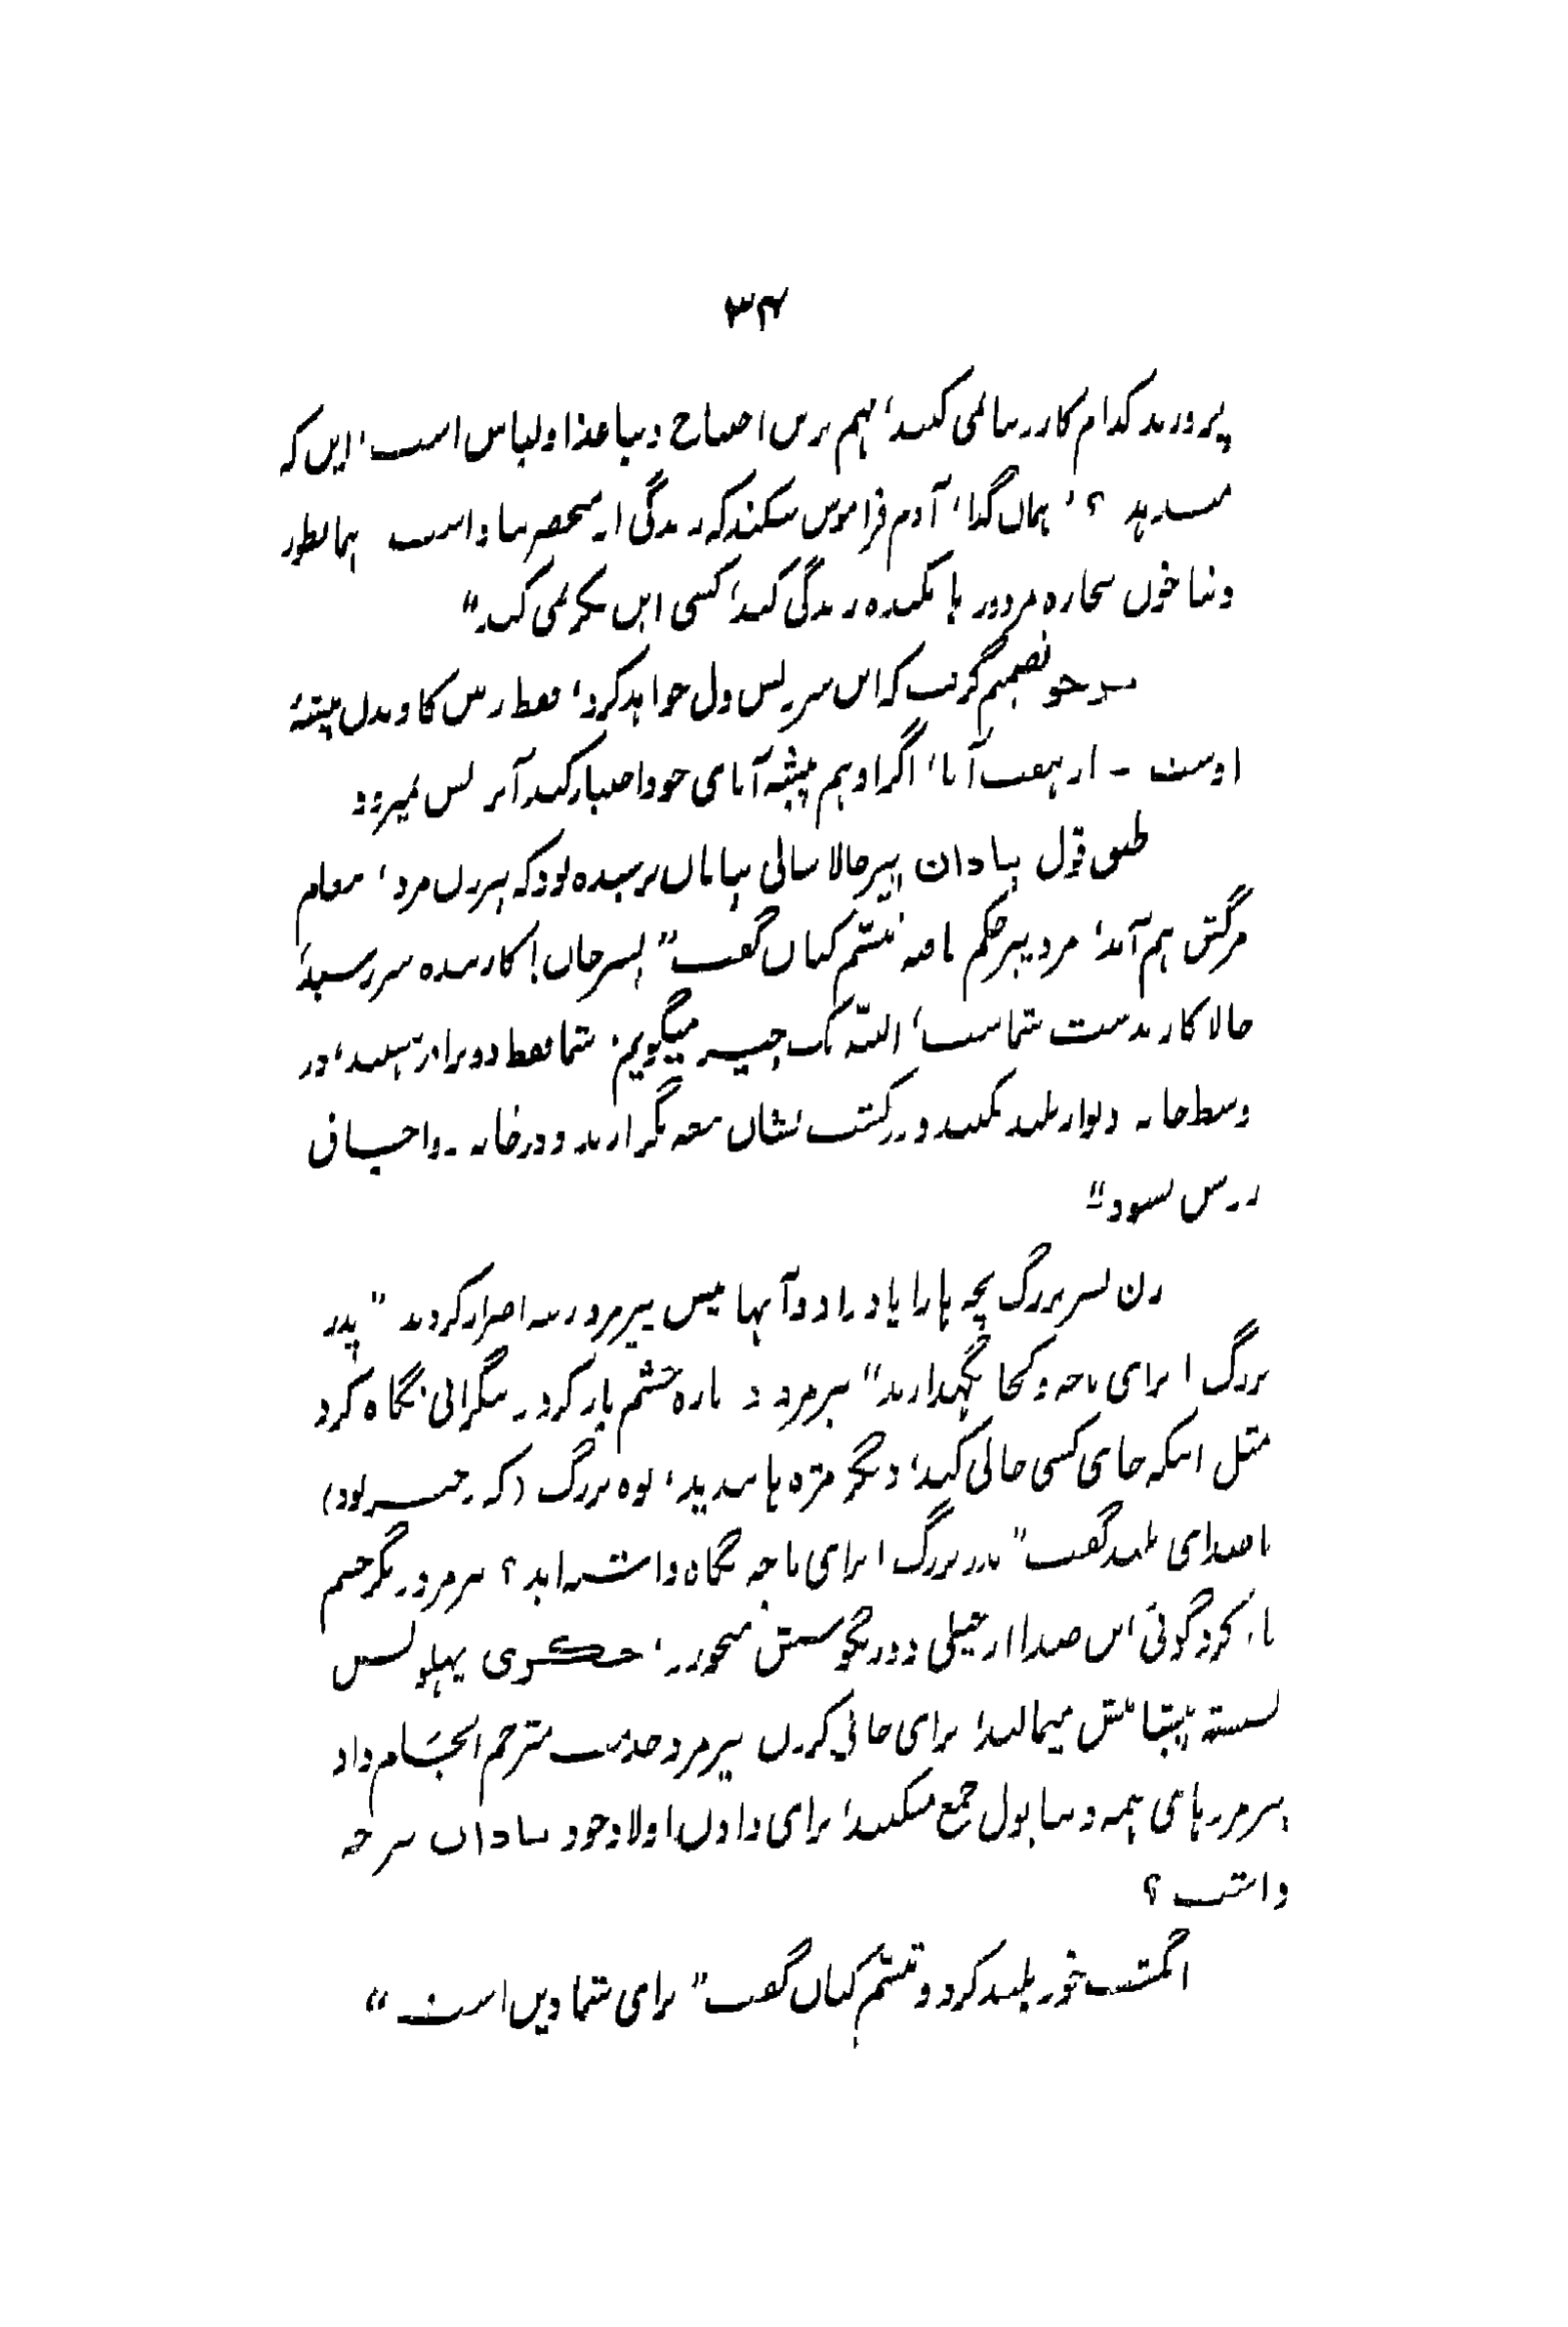 ۳۴
پرورند کدام کار دنیا نمی کنند، مهم ترین احتیاج دنیا غذا و لباس است، این که
میدهد ؟ ' همان گدا، آدم فراموش میکند که زندگی از منحصر بما و است همانطور
دنیا خون بیچاره مزدور ہا مکیده زندگی کند، کسی این فکر نمی کند"
تصمیم گرفت که این سر پس ول خواهد کرد، فقط زمین کاویدن پیشۂ
اوست - از هفت آبا، اگر او هم پیشہ آبای خود اختیار کند آبر پس نمیرود
طبق قول پیر حالا سالی بپایان نرسیده بود که پیرزن مرد، مقام
مرگش هم آمد، مرد پیر حکم تبسّم کنان گفت " پسر جان! کار بنده سر رسید،
حالا کار بدست شماست، البتہ یک چیز میگویم، شما فقط دو برادر هستید، در
وسط خانہ دیوار بلند نکنید و در کشت نشان نگزارید و در خانہ
درس نشود"
زن پسر بزرگ بچہ ہا را یاد داد و آنہا پیش پیرمرد رفتہ اصرار کردند " پدر
بزرگ! برای ما چہ و کجا نگہدارید" پیرمرد دوباره چشم باز کرد و بنگرانی نگاه کرد
مثل اینکه جای کسی خالی کند، دیگر مژه ہا بندید، نوه بزرگ (کہ دختر بود)
با صدای بلند گفت " پدر بزرگ! برای ما چہ نگاه داشتہ اید؟ پیرمرد دیگر چشم
باز کرد گوئی این صدا از خیلی دور بگوشش میخورد، پہلوئش
نشستہ پیشانش میمالید، برای حالی کردن پیرمرد خدمت مترجم انجام داد
پیرمرد ہای ہمہ دنیا پول جمع میکنند، برای دادن اولاد خود چہ
داشت ؟
انگشت خود بلند کرد و تبسّم کنان گفت " برای شما دین است "